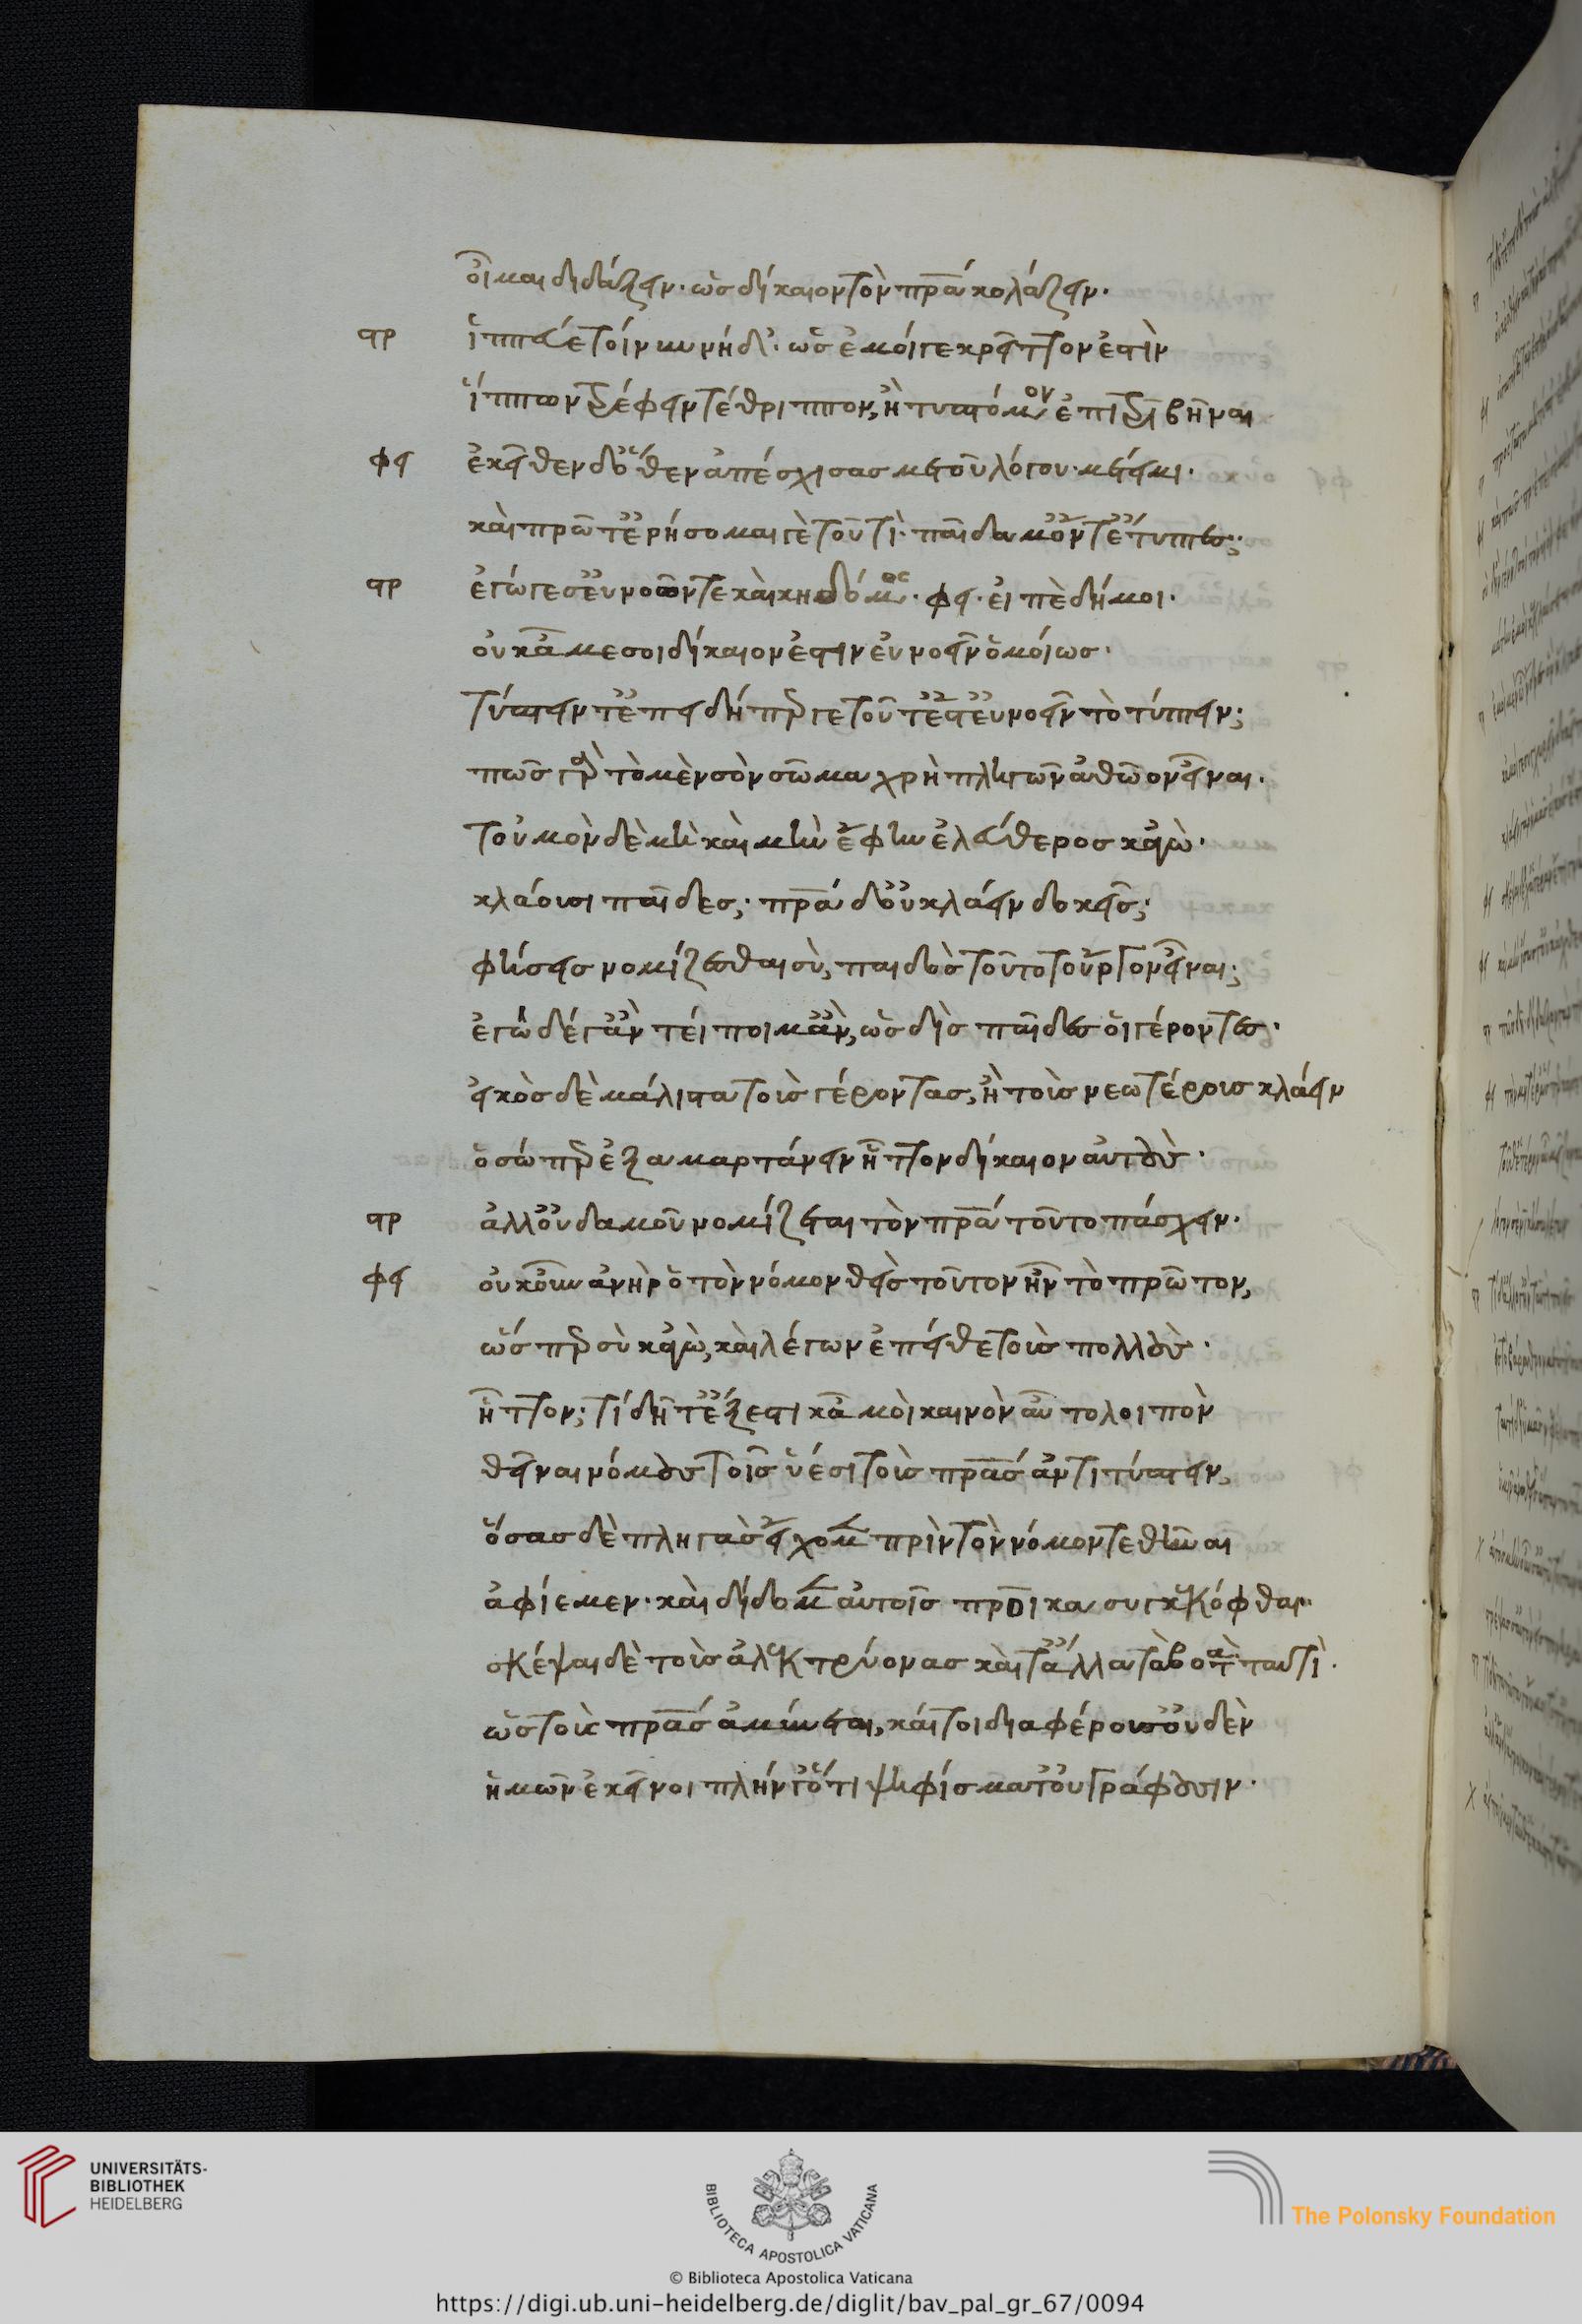 οἷ καὶ διδάξειν· ὡς δίκαιον τὸν πρα͞ά κολάζειν·
στρ ἵππευέ τοίνυν νὴ δί· ὡς ἐμοίγε κρεῖττον ἐστὶν
ἵππων τρέφειν τέθριππον, ἢ τυπτόμενον ἐπιτριβῆναι
φει ἐκεῖθεν δ' ὅθεν ἀπέσχισας με τοῦ λόγου μέτειμι·
καὶ πρῶτ' ἐρήσομαι γὲ τουτὶ· παῖδα μ' ὄντ' ἔτυπτες;
στρ ἐγώγε σ' εὐνοῶν τε καὶ κηδόμενος· φει· εἰπὲ δή μοι·
οὐ κἀμε σοι δίκαιον ἐστιν εὐνοεῖν ὁμοίως·
τύπτειν τ' ἐπειδήπερ γε τοῦτ' ἔστ' εὐνοεῖν τὸ τύπτειν;
πῶς γὰρ τὸ μὲν σὸν σῶμα χρὴ πληγῶν ἀθῶον εἶναι·
τοὐμὸν δὲ μὴ καὶ μὴν ἔφυν ἐλεύθερος κἀγὼ·
κλάουσι παῖδες; πρα͞ά δ' οὐ κλάειν δοκεῖς;
φήσεις νομίζεσθαι σὺ, παιδὸς τοῦτο τοὖργον εἶναι;
ἐγὼ δέ γ' ἂν τείποιμ' ἂν, ὡς δὶς παῖδες οἱ γέροντες·
εἰκὸς δὲ μάλιστα τοὺς γέροντας, ἢ τοὺς νεωτέρους κλάειν
ὁσώπερ ἐξαμαρτάνειν ἧττον δίκαιον αὐτοὺς·
στρ ἀλλ' οὐδαμοῦ νομίζεται τὸν πρα͞ά τοῦτο πάσχειν·
φει οὐκοῦν ἀνὴρ ὁ τὸν νόμον θεὶς τοῦτον ἦν τὸ πρῶτον,
ὥσπερ σὺ κἀγὼ, καὶ λέγων ἐπείθε τοὺς πολλοὺς·
ἧττον; τί δῆτ' ἔξεστι κἀμοὶ καινὸν αὖ τολοιπὸν
θεῖναι νόμους τοῖς ὑέσι τοὺς πρα͞ς ἀντιτύπτειν,
ὅσας δὲ πληγὰς εἴχομεν πρὶν τὸν νόμον τεθῆναι
ἀφίεμεν· καὶ δίδομεν αὐτοῖς προῖκα συγκεκόφθαι·
σκέψαι δὲ τοὺς ἀλεκτρύονας καὶ τἄλλα τὰ βοτὰ ταυτὶ·
ὡς τοὺς πρα͞ς ἀμύνεται, καίτοι διαφέρουσ' οὐδὲν
ἡμῶν ἐκεῖνοι πλήν γ' ὅτι ψηφίσματ' οὐ γράφουσιν·
UNIVERSITÄTS-
BIBLIOTHEK
HEIDELBERG
BIBLIOTECA APOSTOLICA VATICANA
© Biblioteca Apostolica Vaticana
The Polonsky Foundation
https://digi.ub.uni-heidelberg.de/diglit/bav_pal_gr_67/0094